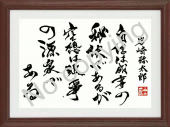 岩崎弥太郎
自信は成事の
秘訣であるが
空想は敗事
の源泉で
ある